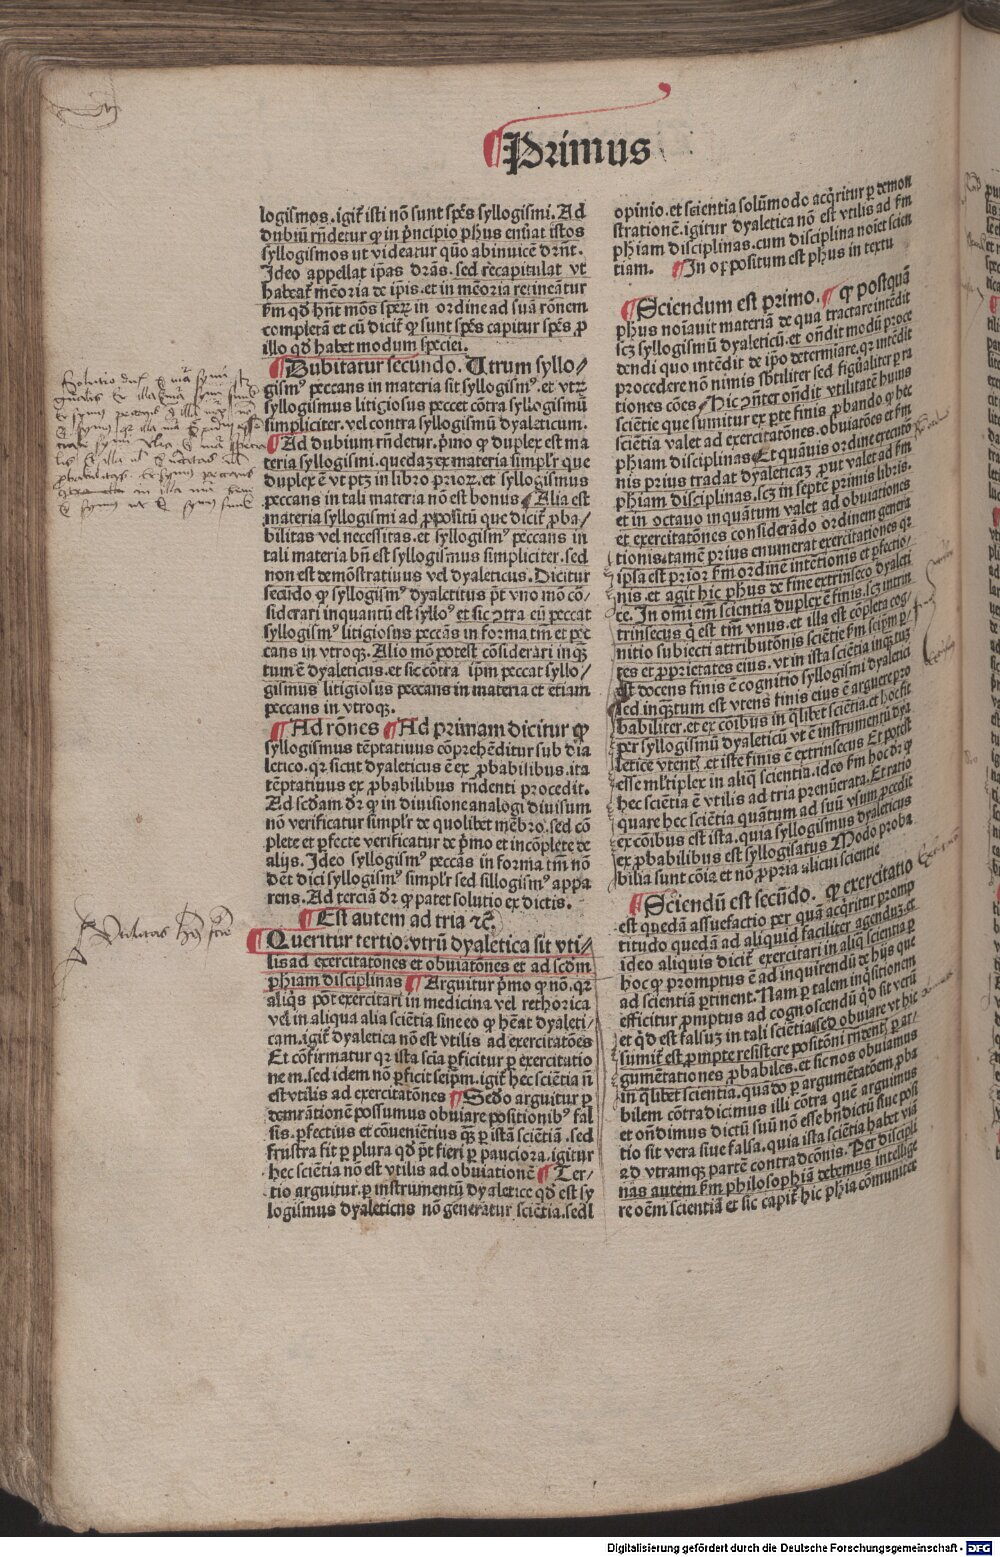 Primus
logismos. igit̃ isti nõ sunt sp̃es syllogismi. Ad
dubiũ rñdetur ꝙ in p̃ncipio ph̃us enũat istos
syllogismos ut videatur quõ abinuicẽ drñt.
Ideo appellat ip̃as drãs. sed recapitulat vt
habeat̃ mẽoria de ip̃is. et in mẽoria retineãtur
fm qd̃ hñt mõs sper̃ in ordine ad suã rõnem
completã et cũ dicit̃ ꝙ sunt sp̃es capitur sp̃es ꝓ
illo qd̃ habet modum speciei.
¶ Dubitatur secundo. Utrum syllo/
gismꝰ peccans in materia sit syllogismꝰ. et vtꝝ
syllogismus litigiosus peccet cõtra syllogismũ
simpliciter. vel contra syllogismũ dyaleticum.
¶ Ad dubium rñdetur. p̃mo ꝙ duplex est ma
teria syllogismi. quedaꝫ ex materia simplr̃ que
duplex ẽ vt ptꝫ in libro prioꝝ. et syllogismus
peccans in tali materia nõ est bonus ¶ Alia est
materia syllogismi ad ꝓpositũ que dicit̃ ꝓba/
bilitas vel necessitas. et syllogismꝰ peccans in
tali materia bñ est syllogismus simpliciter. sed
non est demõstratiuus vel dyaleticus. Dicitur
secũdo ꝙ syllogismꝰ dyaletĩcus pt̃ vno mõ cõ/
siderari inquantũ est sylloꝰ et sic ꝯtra eũ peccat
syllogismꝰ litigiosus peccãs in forma tm̃ et pec
cans in vtroqꝫ. Alio mõ potest cõsiderari inqꝫ̃
tum ẽ dyaleticus. et sic cõtra ip̃m peccat syllo/
gismus litigiosus peccans in materia et etiam
peccans in vtroqꝫ.
¶ Ad rões ¶ Ad primam dicitur ꝙ
syllogismus tẽptatiuus cõprehẽditur sub dia
letico. qꝛ sicut dyaleticus ẽ ex ꝓbabilibus. ita
tẽptatiuus ex ꝓbabilibus rñdenti procedit.
Ad scd̃am dr̃ ꝙ in diuisione analogi diuisum
nõ verificatur simplr̃ de quolibet mẽbro. sed cõ
plete et ꝑfecte verificatur de p̃mo et incõplete de
alijs. Ideo syllogismꝰ peccãs in forma tm̃ nõ
dẽt dici syllogismꝰ simplr̃ sed sillogismꝰ appa
rens. Ad terciã dr̃ ꝙ patet solutio ex dictis.
¶ Est autem ad tria ⁊c̃.
¶ Queritur tertio. vtrũ dyaletica sit vti/
lis ad exercitatões et obuiatões et ad scd̃m
ph̃iam disciplinas ¶ Arguitur p̃mo ꝙ nõ. qꝛ
aliq̃s põt exercitari in medicina vel rethorica
vel in aliqua alia sciẽtia sine eo ꝙ hẽat dyaleti/
cam. igit̃ dyaletica nõ est vtilis ad exercitatões
Et cõfirmatur qꝛ ista scĩa ꝑficitur ꝑ exercitatio
nem. sed idem nõ ꝑficit seip̃m. igit̃ hec sciẽtia ñ
est vtilis ad exercitatões ¶ Scd̃o arguitur ꝑ
demrãtionẽ possumus obuiare positionibꝰ fal
sis. ꝑfectius et cõueniẽtius qꝫ̃ ꝑ istã sciẽtiã. sed
frustra fit ꝑ plura qd̃ pt̃ fieri ꝑ pauciora. igitur
hec sciẽtia nõ est vtilis ad obuiationẽ ¶ Ter/
tio arguitur. ꝑ instrumentũ dyaletice qd̃ est sy
logismus dyaleticus nõ generatur sciẽtia. sed
opinio. et scientia solũmodo acq̃ritur ꝑ demon
strationẽ. igitur dyaletica nõ est vtilis ad fm
ph̃iam disciplinas. cum disciplina noĩet scien
tiam. ¶ In oppositum est ph̃us in textu
¶ Sciendum est primo. ¶ ꝙ postquã
ph̃us noĩauit materiã de qua tractare intẽdit
scꝫ syllogismũ dyaleticũ. et oñdit modũ proce
dendi quo intẽdit de ip̃o determĩare. qꝛ intẽdit
procedere nõ nimis sb̃tiliter sed figũaliter ꝑ ra
tiones cões. Hic ꝯñter oñdit vtilitatẽ huius
sciẽtie que sumitur ex ꝑte finis ꝓbando ꝙ hec
sciẽtia valet ad exercitatões. obuiatões et fm
ph̃iam disciplinas Et quãuis ordine executõ
nis prius tradat dyaleticaꝫ ꝓut valet ad fm
ph̃iam disciplinas. scꝫ in septẽ primis libris.
et in octauo inquãtum valet ad obuiationes
et exercitatões considerãdo ordinem genera
tionis. tamẽ prius enumerat exercitationes qꝛ
ipsa est prior fm ordinẽ intẽtionis et ꝑfectio/
nis. et agit hic ph̃us de fine extrinseco dyaleti
ce. In om̃i em̃ scientia duplex ẽ finis. scꝫ intrin
trinsecus q̃ est tm̃ vnus. et illa est cõpleta cog/
nitio subiecti attributõnis sciẽtie fm seip̃m ꝑ/
tes et ꝓprietates eius. vt in ista sciẽtia inqꝫ̃tuꝫ
est docens finis ẽ cognitio syllogismi dyaletici
sed inqꝫ̃tum est vtens finis eius ẽ arguere pro
babiliter. et ex cõibus in q̃libet sciẽtia. et hoc fit
per syllogismũ dyaleticũ vt ẽ instrumẽtũ dya
letice vtent̃. et iste finis ẽ extrinsecus Et potest
esse mlt̃iplex in aliq̃ scientia. ideo fm hoc dr̃ ꝙ
hec sciẽtia ẽ vtilis ad tria prenũerata. Et ratio
quare hec sciẽtia quãtum ad suũ vsum ꝓcedit
ex cõibus est ista. quia syllogismus dyaleticus
ex ꝓbabilibus est syllogisatus Modo proba
bilia sunt cõia et nõ ꝓpria alicui scientie
¶ Sciendũ est secũdo. ꝙ exercitatio
est quedã assuefactio per quã acq̃ritur promp
titudo quedã ad aliquid faciliter agenduꝫ. et
ideo aliquis dicit̃ exercitari in aliq̃ scientia ꝑ
hoc ꝙ promptus ẽ ad inquirendũ de hijs que
ad scientiã ꝑtinent. Nam ꝑ talem inq̃sitionem
efficitur ꝓmptus ad cognoscendũ qd̃ sit verũ
et qd̃ est falsuꝫ in tali sciẽtia. sed obuiare vt hic
sumit̃ est ꝓmpte resistere positõni rñdent̃ ꝑ ar/
gumẽtationes ꝓbabiles. et sic nos obuiamus
in q̃libet scientia. quãdo ꝑ argumẽtatõem ꝓba
bilem cõtradicimus illi cõtra quẽ arguimus
et oñdimus dictũ suũ nõ esse bñ dictũ siue posi
tio sit vera siue falsa. quia ista sciẽtia habet viã
ad vtramqꝫ partẽ contradcõnis. Per discipli
nas autem fm philosophiã debemus intellige
re oẽm scientiã et sic capit̃ hic ph̃ia cõmuniter
Utilitas
Digitalisierung gefördert durch die Deutsche Forschungsgemeinschaft - DFG